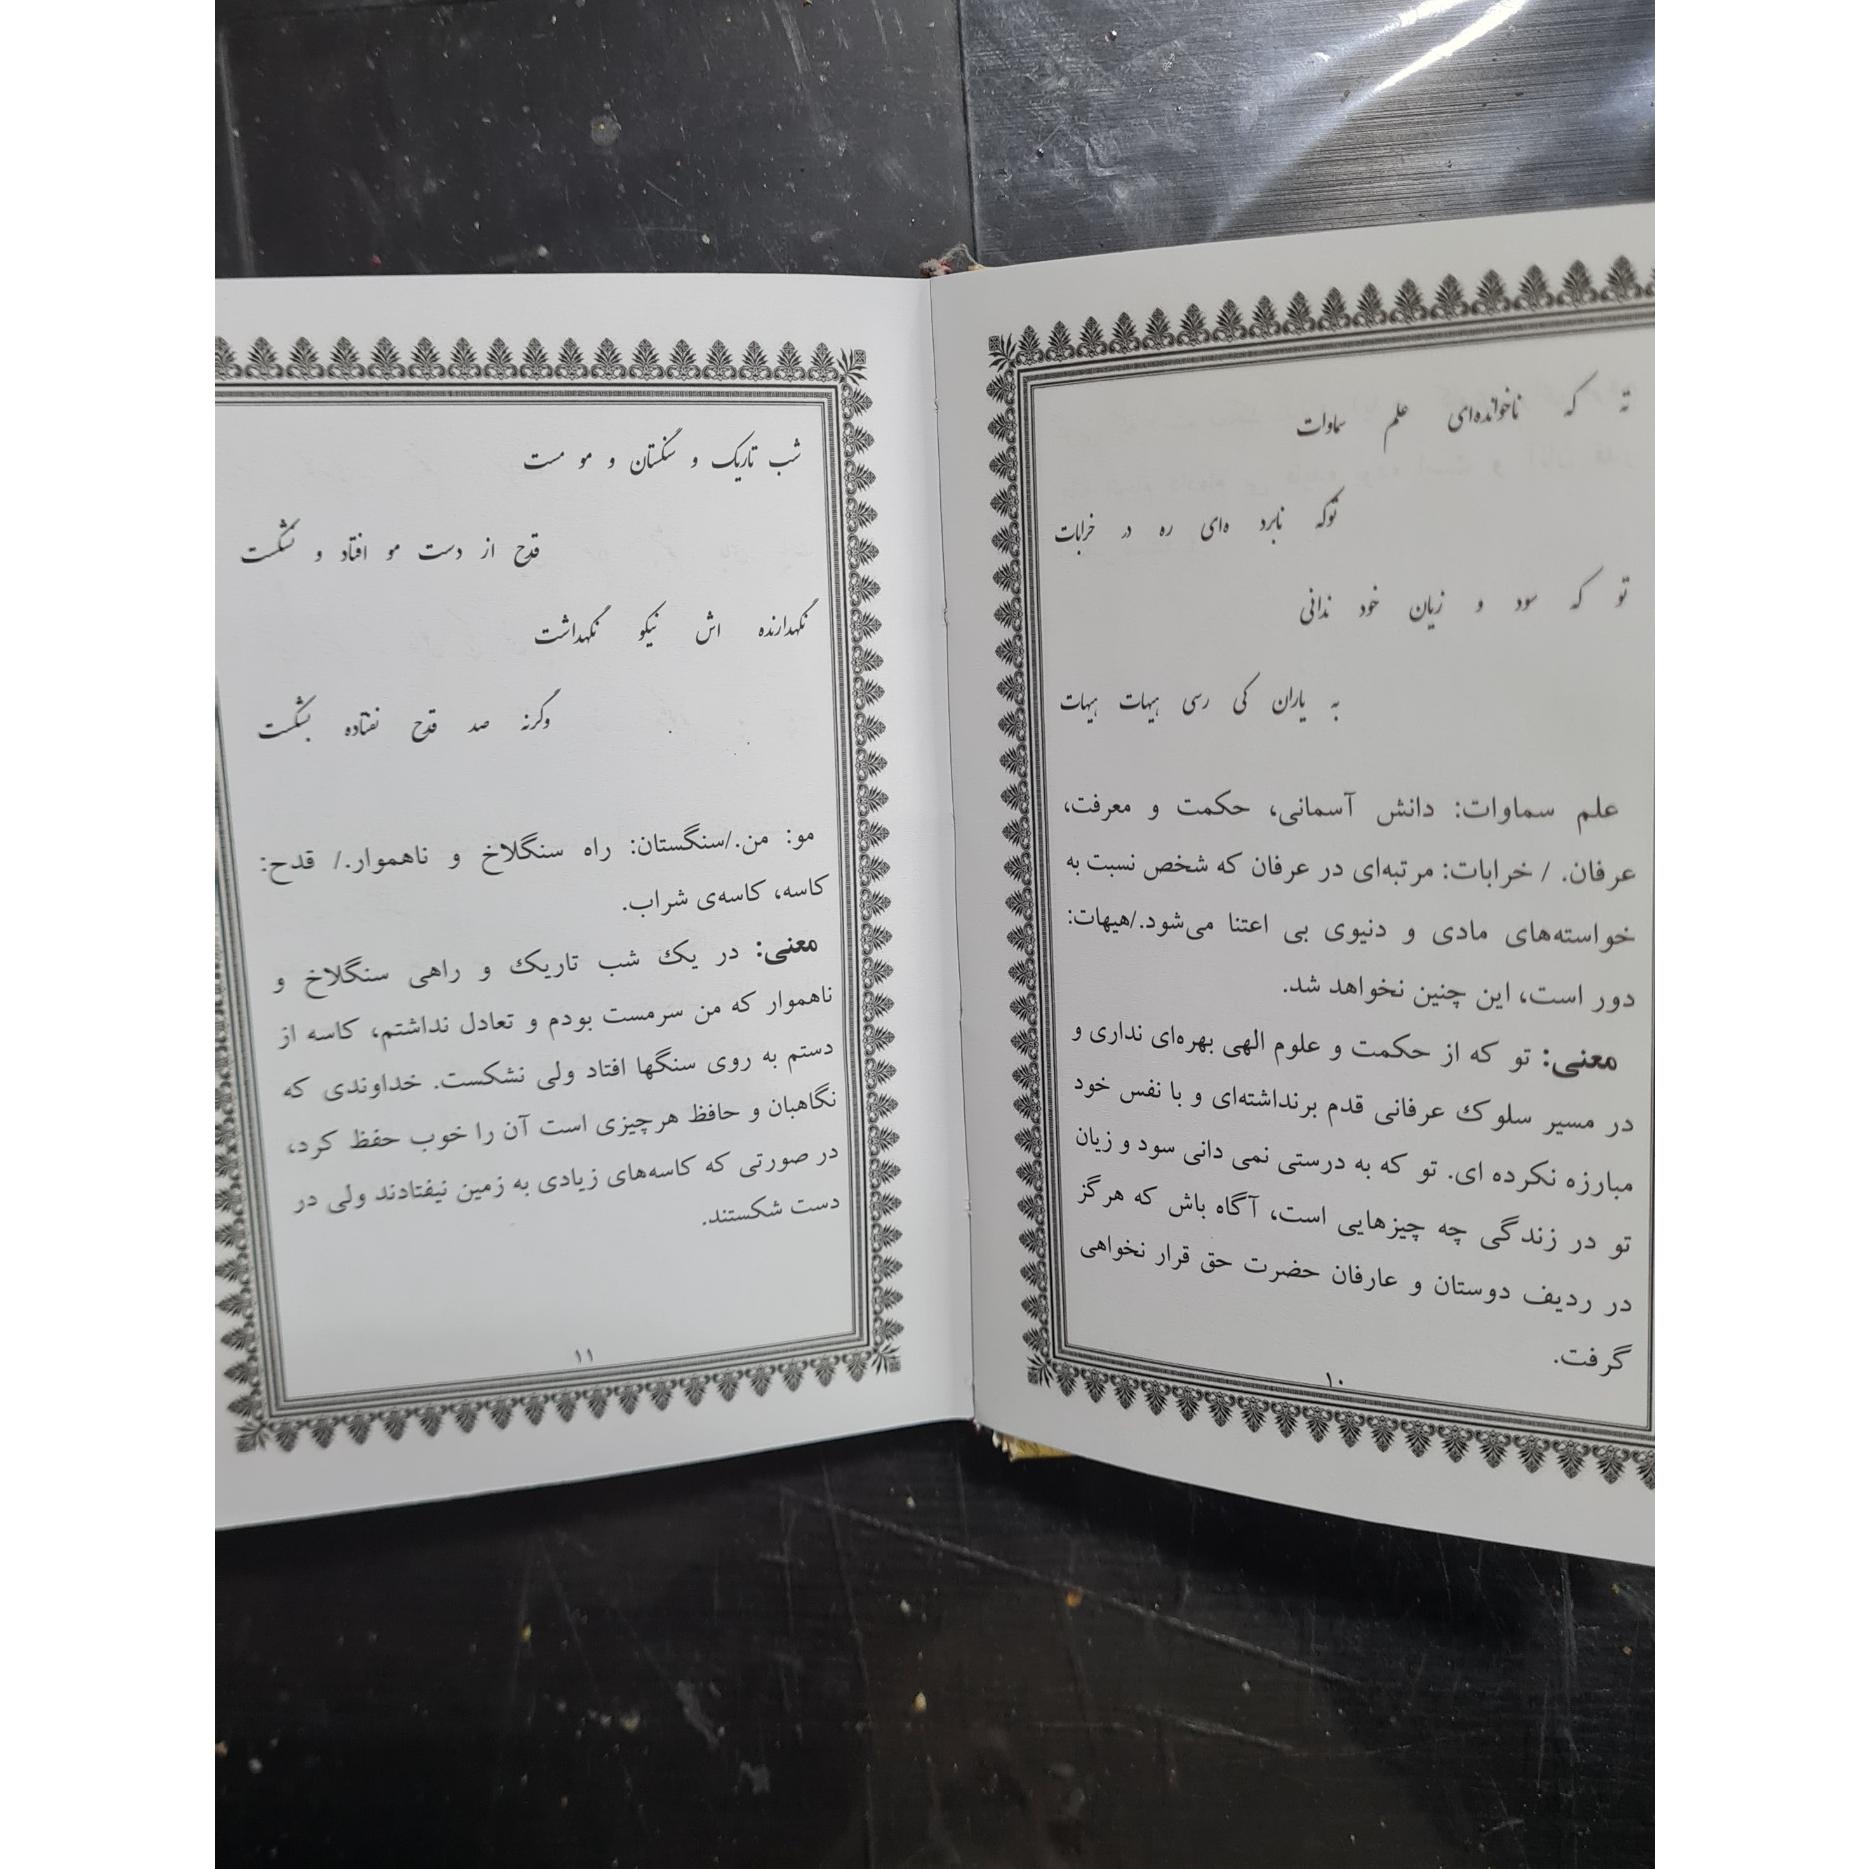 ته که ناخوانده‌ای علم سماوات
توکه نابرد ه‌ای ره در خرابات
تو که سود و زیان خود ندانی
به یاران کی رسی هیهات هیهات
علم سماوات: دانش آسمانی، حکمت و معرفت،
عرفان. / خرابات: مرتبه‌ای در عرفان که شخص نسبت به
خواسته‌های مادی و دنیوی بی اعتنا می‌شود./هیهات:
دور است، این چنین نخواهد شد.
معنی: تو که از حکمت و علوم الهی بهره‌ای نداری و
در مسیر سلوک عرفانی قدم برنداشته‌ای و با نفس خود
مبارزه نکرده ای. تو که به درستی نمی دانی سود و زیان
تو در زندگی چه چیزهایی است، آگاه باش که هرگز
در ردیف دوستان و عارفان حضرت حق قرار نخواهی
گرفت.
۱۰
شب تاریک و سنگستان و مو مست
قدح از دست مو افتاد و نشکست
نگهدارنده اش نیکو نگهداشت
وگرنه صد قدح نفتاده بشکست
مو: من./سنگستان: راه سنگلاخ و ناهموار./ قدح:
کاسه، کاسه‌ی شراب.
معنی: در یک شب تاریک و راهی سنگلاخ و
ناهموار که من سرمست بودم و تعادل نداشتم، کاسه از
دستم به روی سنگها افتاد ولی نشکست. خداوندی که
نگاهبان و حافظ هرچیزی است آن را خوب حفظ کرد،
در صورتی که کاسه‌های زیادی به زمین نیفتادند ولی در
دست شکستند.
۱۱